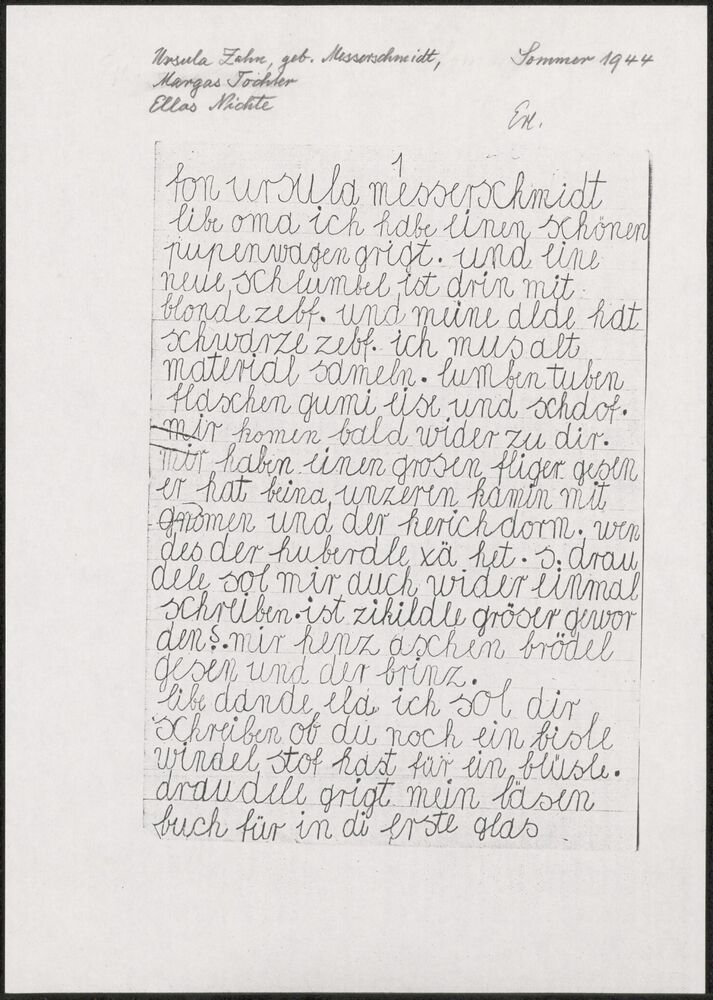 Ursula Zahn, geb. Messerschmidt, Sommer 1944
Margas Tochter
Ellas Nichte
Erl.
1
fon ursula messerschmidt
libe oma ich habe einen schönen
pupenwagen grigt. und eine
neue schlumbel ist drin mit
blonde zebf. und meine alde hat
schwarze zebf. ich mus alt
material sameln. lumben tuben
flaschen gumi eise und schdof.
mir komen bald wider zu dir.
mir haben einen grosen fliger gesen
er hat beina unzeren kamin mit
gnomen und der kerichdorm. wen
des der huberdle xä het. s. drau
dele sol mir auch wider einmal
schreiben. ist zikildle gröser gewor
den?. mir henz aschen brödel
gesen und der brinz.
libe dande ela ich sol dir
schreiben ob du noch ein bisle
windel stof hast für ein blüsle.
draudele grigt mein läsen
buch für in di erste glas